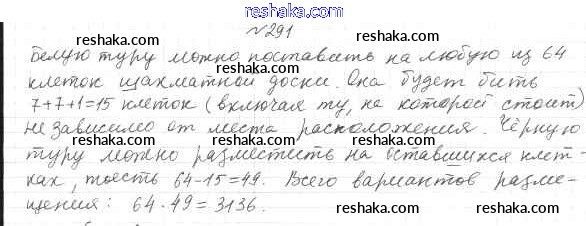 reshaka.com
№291
reshaka.com
Белую туру можно поставить на любую из 64
клеток шахматной доски. Она будет бить
7+7+1=15 клеток (включая ту, на которой стоит)
reshaka.com reshaka.com reshaka.com
не зависимо от места расположения. Чёрную
туру можно разместить на оставшихся клет-
ках, тоесть 64-15=49. Всего вариантов разме-
reshaka.com reshaka.com
щения: 64·49=3136.
reshaka.com
reshaka.com